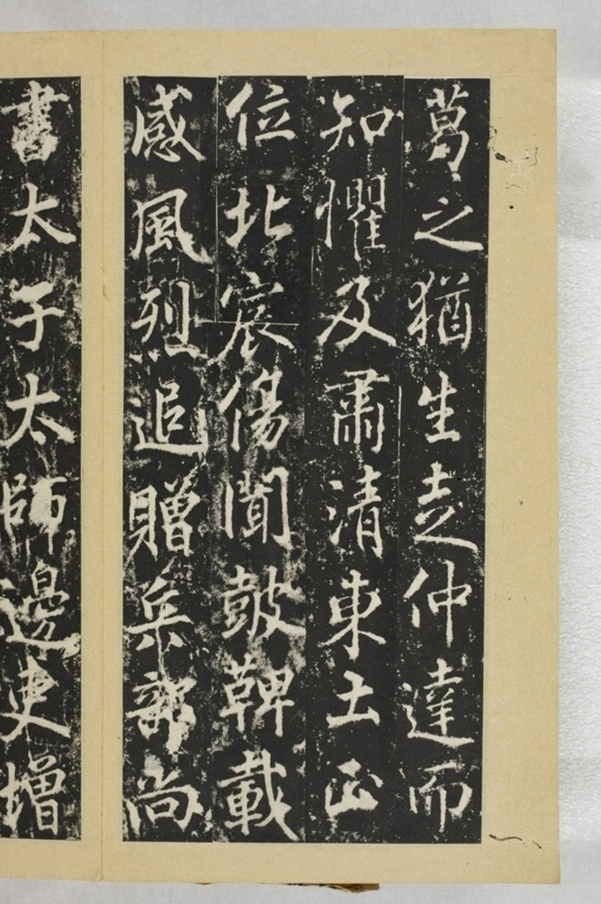 葛之猶生走仲達而
知懼及肅清東土正
位北宸傷聞鼓鞞載
感風烈追贈兵部尚
書太子太師邊吏增